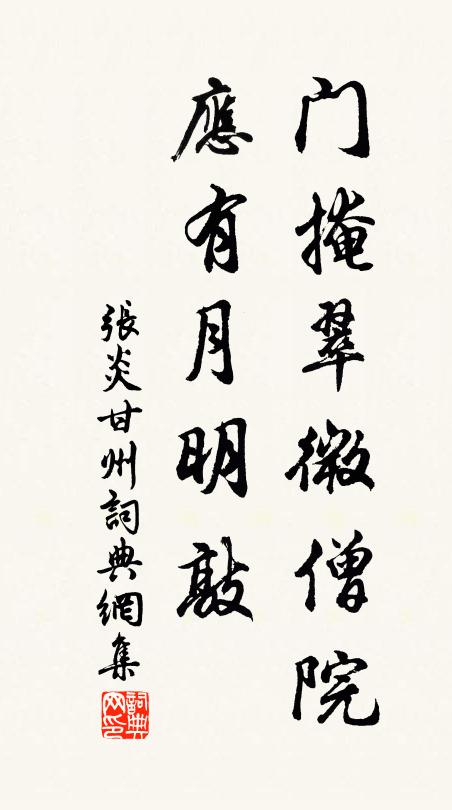 门掩翠微僧院
應有月明敲
張炎甘州詞典網集
詞典网印